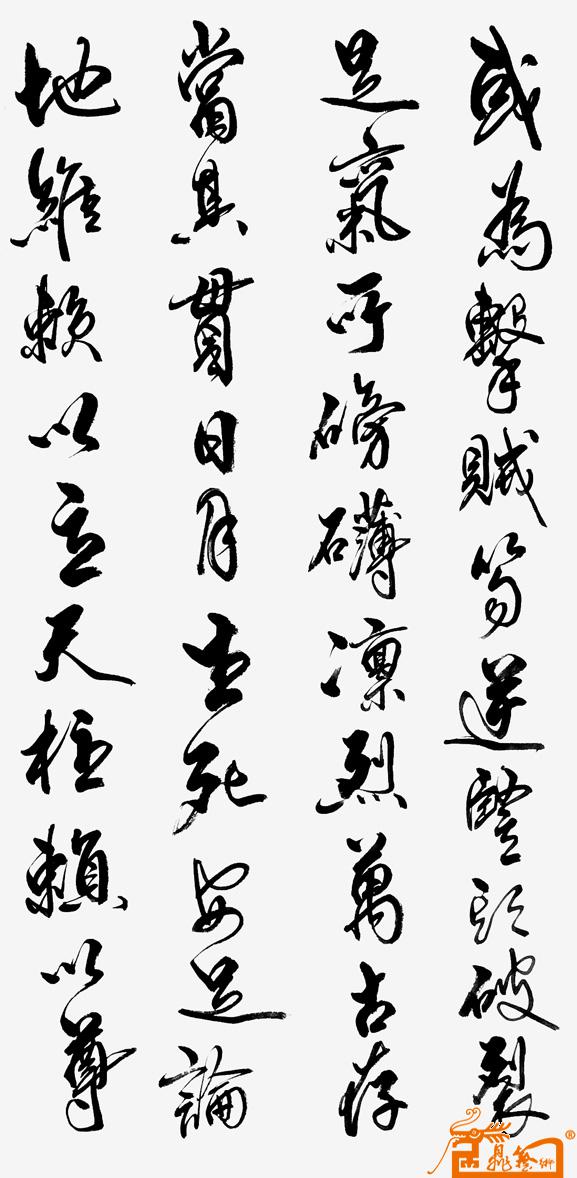 或為擊賊笏逆豎頭破裂
是氣所磅礴凜烈萬古存
當其貫日月生死安足論
地維賴以立天柱賴以尊